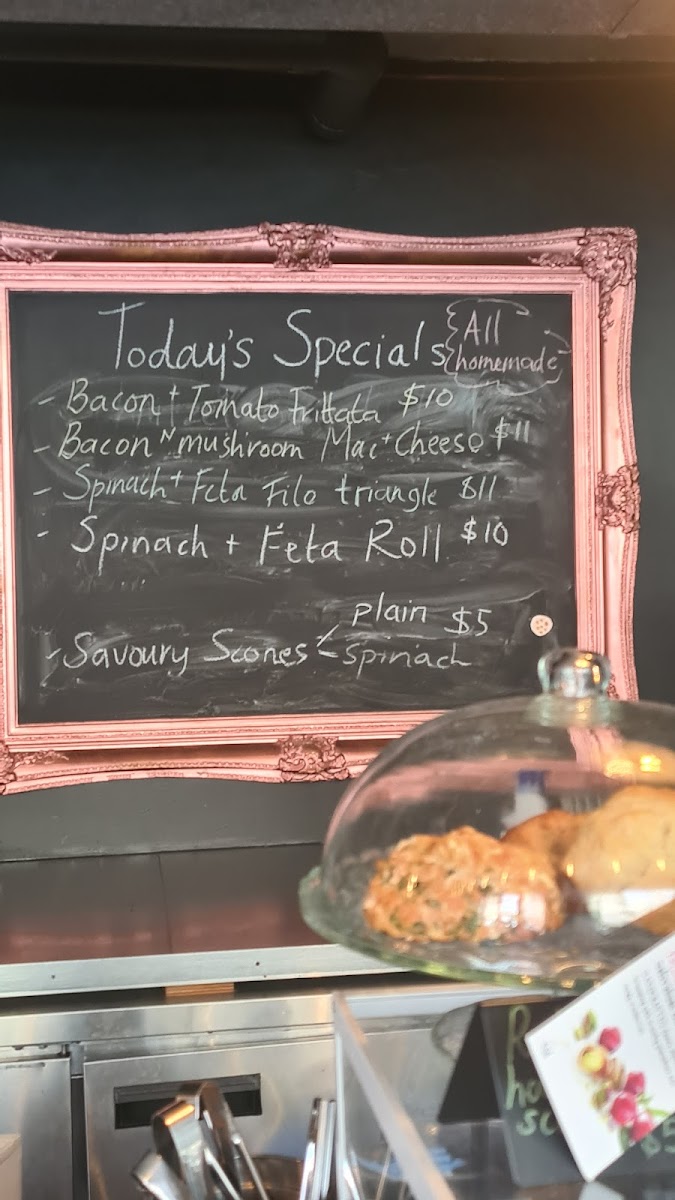 Today's Specials
All
homemade
- Bacon + Tomato Frittata $10
- Bacon N mushroom Mac + Cheese $11
- Spinach + Feta Filo triangle $11
- Spinach + Feta Roll $10
plain $5
- Savoury Scones
- Spinach